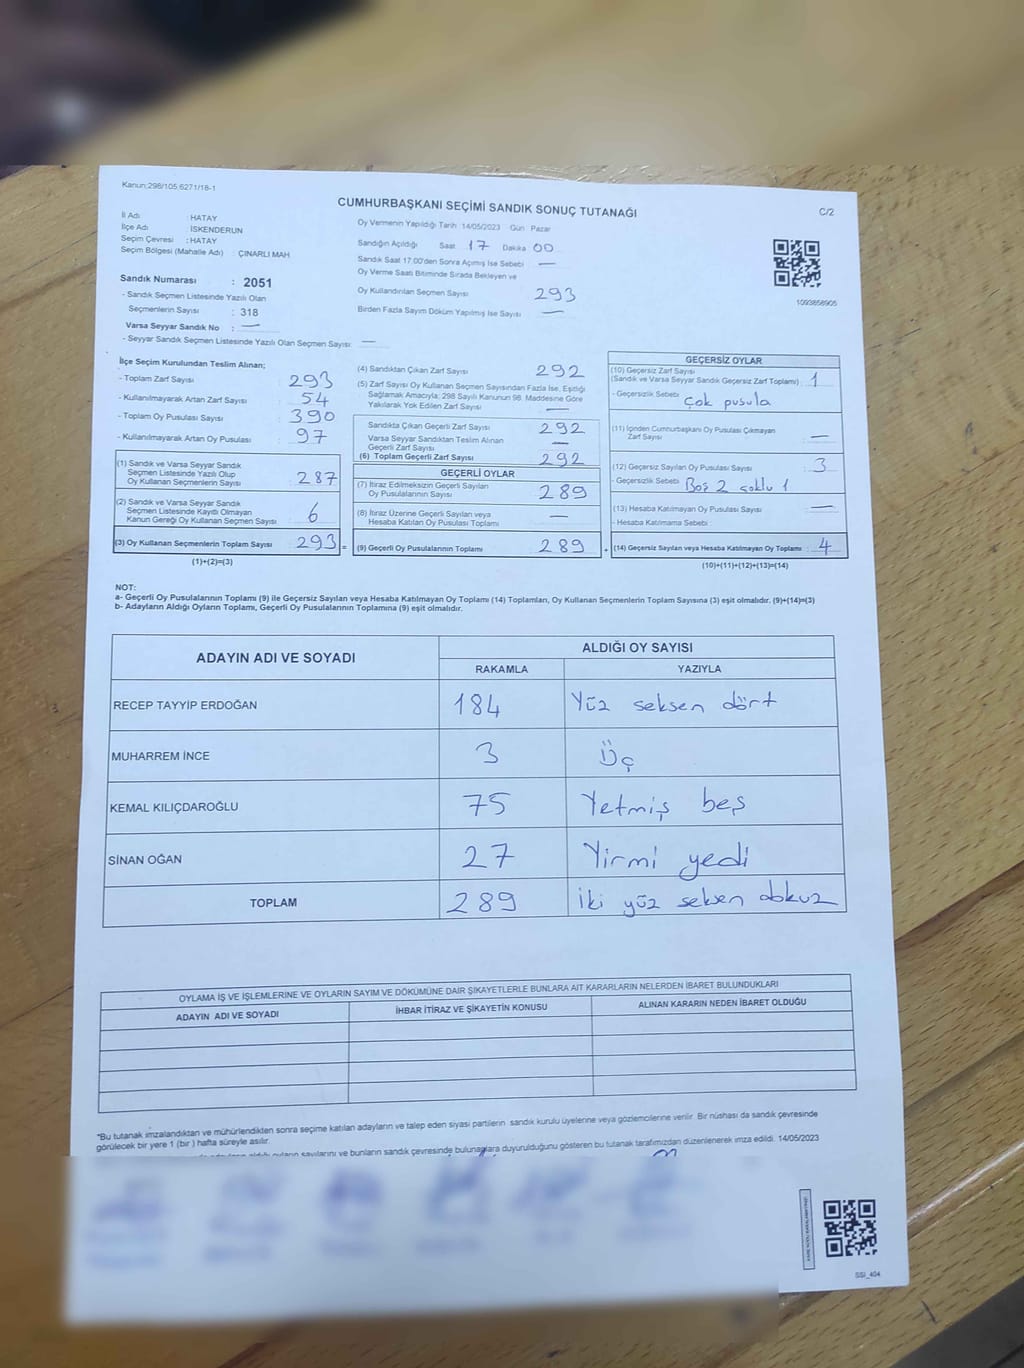 Kanun:298/105;6271/18-1
CUMHURBAŞKANI SEÇİMİ SANDIK SONUÇ TUTANAĞI
C/2
İl Adı : HATAY
İlçe Adı : İSKENDERUN
Seçim Çevresi : HATAY
Seçim Bölgesi (Mahalle Adı) : ÇINARLI MAH.
Sandık Numarası : 2051
- Sandık Seçmen Listesinde Yazılı Olan
Seçmenlerin Sayısı : 318
Varsa Seyyar Sandık No : —
- Seyyar Sandık Seçmen Listesinde Yazılı Olan Seçmen Sayısı: —
Oy Vermenin Yapıldığı Tarih 14/05/2023 Gün Pazar
Sandığın Açıldığı Saat 17 Dakika 00
Sandık Saat 17:00'den Sonra Açımış İse Sebebi —
Oy Verme Saati Bitiminde Sırada Bekleyen ve
Oy Kullandırılan Seçmen Sayısı 293
Birden Fazla Sayım Döküm Yapılmış İse Sayısı —
1093858905
İlçe Seçim Kurulundan Teslim Alınan;
- Toplam Zarf Sayısı 293
- Kullanılmayarak Artan Zarf Sayısı 54
- Toplam Oy Pusulası Sayısı 390
- Kullanılmayarak Artan Oy Pusulası 97
(1) Sandık ve Varsa Seyyar Sandık
Seçmen Listesinde Yazılı Olup
Oy Kullanan Seçmenlerin Sayısı 287
(2) Sandık ve Varsa Seyyar Sandık
Seçmen Listesinde Kayıtlı Olmayan
Kanun Gereği Oy Kullanan Seçmen Sayısı 6
(3) Oy Kullanan Seçmenlerin Toplam Sayısı 293 =
(1)+(2)=(3)
(4) Sandıktan Çıkan Zarf Sayısı 292
(5) Zarf Sayısı Oy Kullanan Seçmen Sayısından Fazla İse, Eşitliği
Sağlamak Amacıyla; 298 Sayılı Kanunun 98. Maddesine Göre
Yakılarak Yok Edilen Zarf Sayısı —
Sandıkta Çıkan Geçerli Zarf Sayısı 292
Varsa Seyyar Sandıktan Teslim Alınan
Geçerli Zarf Sayısı —
(6) Toplam Geçerli Zarf Sayısı 292
GEÇERLİ OYLAR
(7) İtiraz Edilmeksizin Geçerli Sayılan
Oy Pusulalarının Sayısı 289
(8) İtiraz Üzerine Geçerli Sayılan veya
Hesaba Katılan Oy Pusulası Toplamı —
(9) Geçerli Oy Pusulalarının Toplamı 289 +
GEÇERSİZ OYLAR
(10) Geçersiz Zarf Sayısı
(Sandık ve Varsa Seyyar Sandık Geçersiz Zarf Toplamı) : 1
- Geçersizlik Sebebi çok pusula
(11) İçinden Cumhurbaşkanı Oy Pusulası Çıkmayan
Zarf Sayısı —
(12) Geçersiz Sayılan Oy Pusulası Sayısı : 3
- Geçersizlik Sebebi Boş 2 çoklu 1
(13) Hesaba Katılmayan Oy Pusulası Sayısı —
- Hesaba Katılmama Sebebi
(14) Geçersiz Sayılan veya Hesaba Katılmayan Oy Toplamı : 4
(10)+(11)+(12)+(13)=(14)
NOT:
a- Geçerli Oy Pusulalarının Toplamı (9) ile Geçersiz Sayılan veya Hesaba Katılmayan Oy Toplamı (14) Toplamları, Oy Kullanan Seçmenlerin Toplam Sayısına (3) eşit olmalıdır. (9)+(14)=(3)
b- Adayların Aldığı Oyların Toplamı, Geçerli Oy Pusulalarının Toplamına (9) eşit olmalıdır.
ADAYIN ADI VE SOYADI
ALDIĞI OY SAYISI
RAKAMLA YAZIYLA
RECEP TAYYİP ERDOĞAN 184 Yüz seksen dört
MUHARREM İNCE 3 Üç
KEMAL KILIÇDAROĞLU 75 Yetmiş beş
SİNAN OĞAN 27 Yirmi yedi
TOPLAM 289 İki yüz seksen dokuz
OYLAMA İŞ VE İŞLEMLERİNE VE OYLARIN SAYIM VE DÖKÜMÜNE DAİR ŞİKAYETLERLE BUNLARA AİT KARARLARIN NELERDEN İBARET BULUNDUKLARI
ADAYIN ADI VE SOYADI İHBAR İTİRAZ VE ŞİKAYETİN KONUSU ALINAN KARARIN NEDEN İBARET OLDUĞU
*Bu tutanak imzalandıktan ve mühürlendikten sonra seçime katılan adayların ve talep eden siyasi partilerin sandık kurulu üyelerine veya gözlemcilerine verilir. Bir nüshası da sandık çevresinde
görülecek bir yere 1 (bir ) hafta süreyle asılır.
aldığı oyların sayılarını ve bunların sandık çevresinde bulunanlara duyurulduğunu gösteren bu tutanak tarafımızdan düzenlenerek imza edildi. 14/05/2023
SSI_404